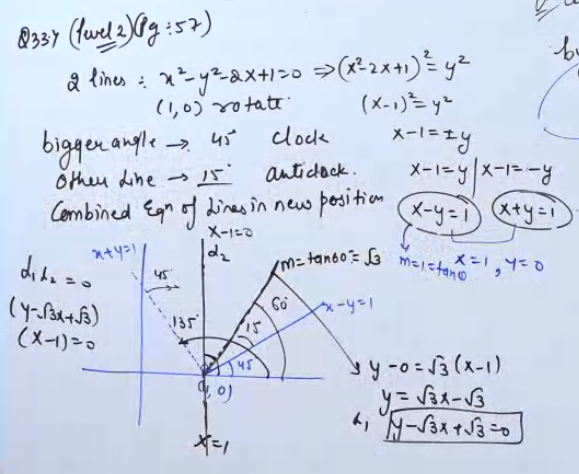 Q33:7 (level 2) (Pg : 57)
2 lines : x²-y²-2x+1=0 ⇒ (x²-2x+1)² = y²
(1,0) rotate
(x-1)² = y²
bigger angle → 45° Clock
x-1 = ±y
Other Line → 15° anticlock.
x-1=y | x-1=-y
Combined Eqn of Lines in new position
x-y=1
x+y=1
m=1=tanθ
x=1, y=0
x-1=0
x+y=1
L₂
m=tan60°=√3
L₁L₂=0
45
60°
x-y=1
(y-√3x+√3)
135°
15
(x-1)=0
45
(1,0)
y-0=√3(x-1)
y=√3x-√3
L₁ y-√3x+√3=0
x=1